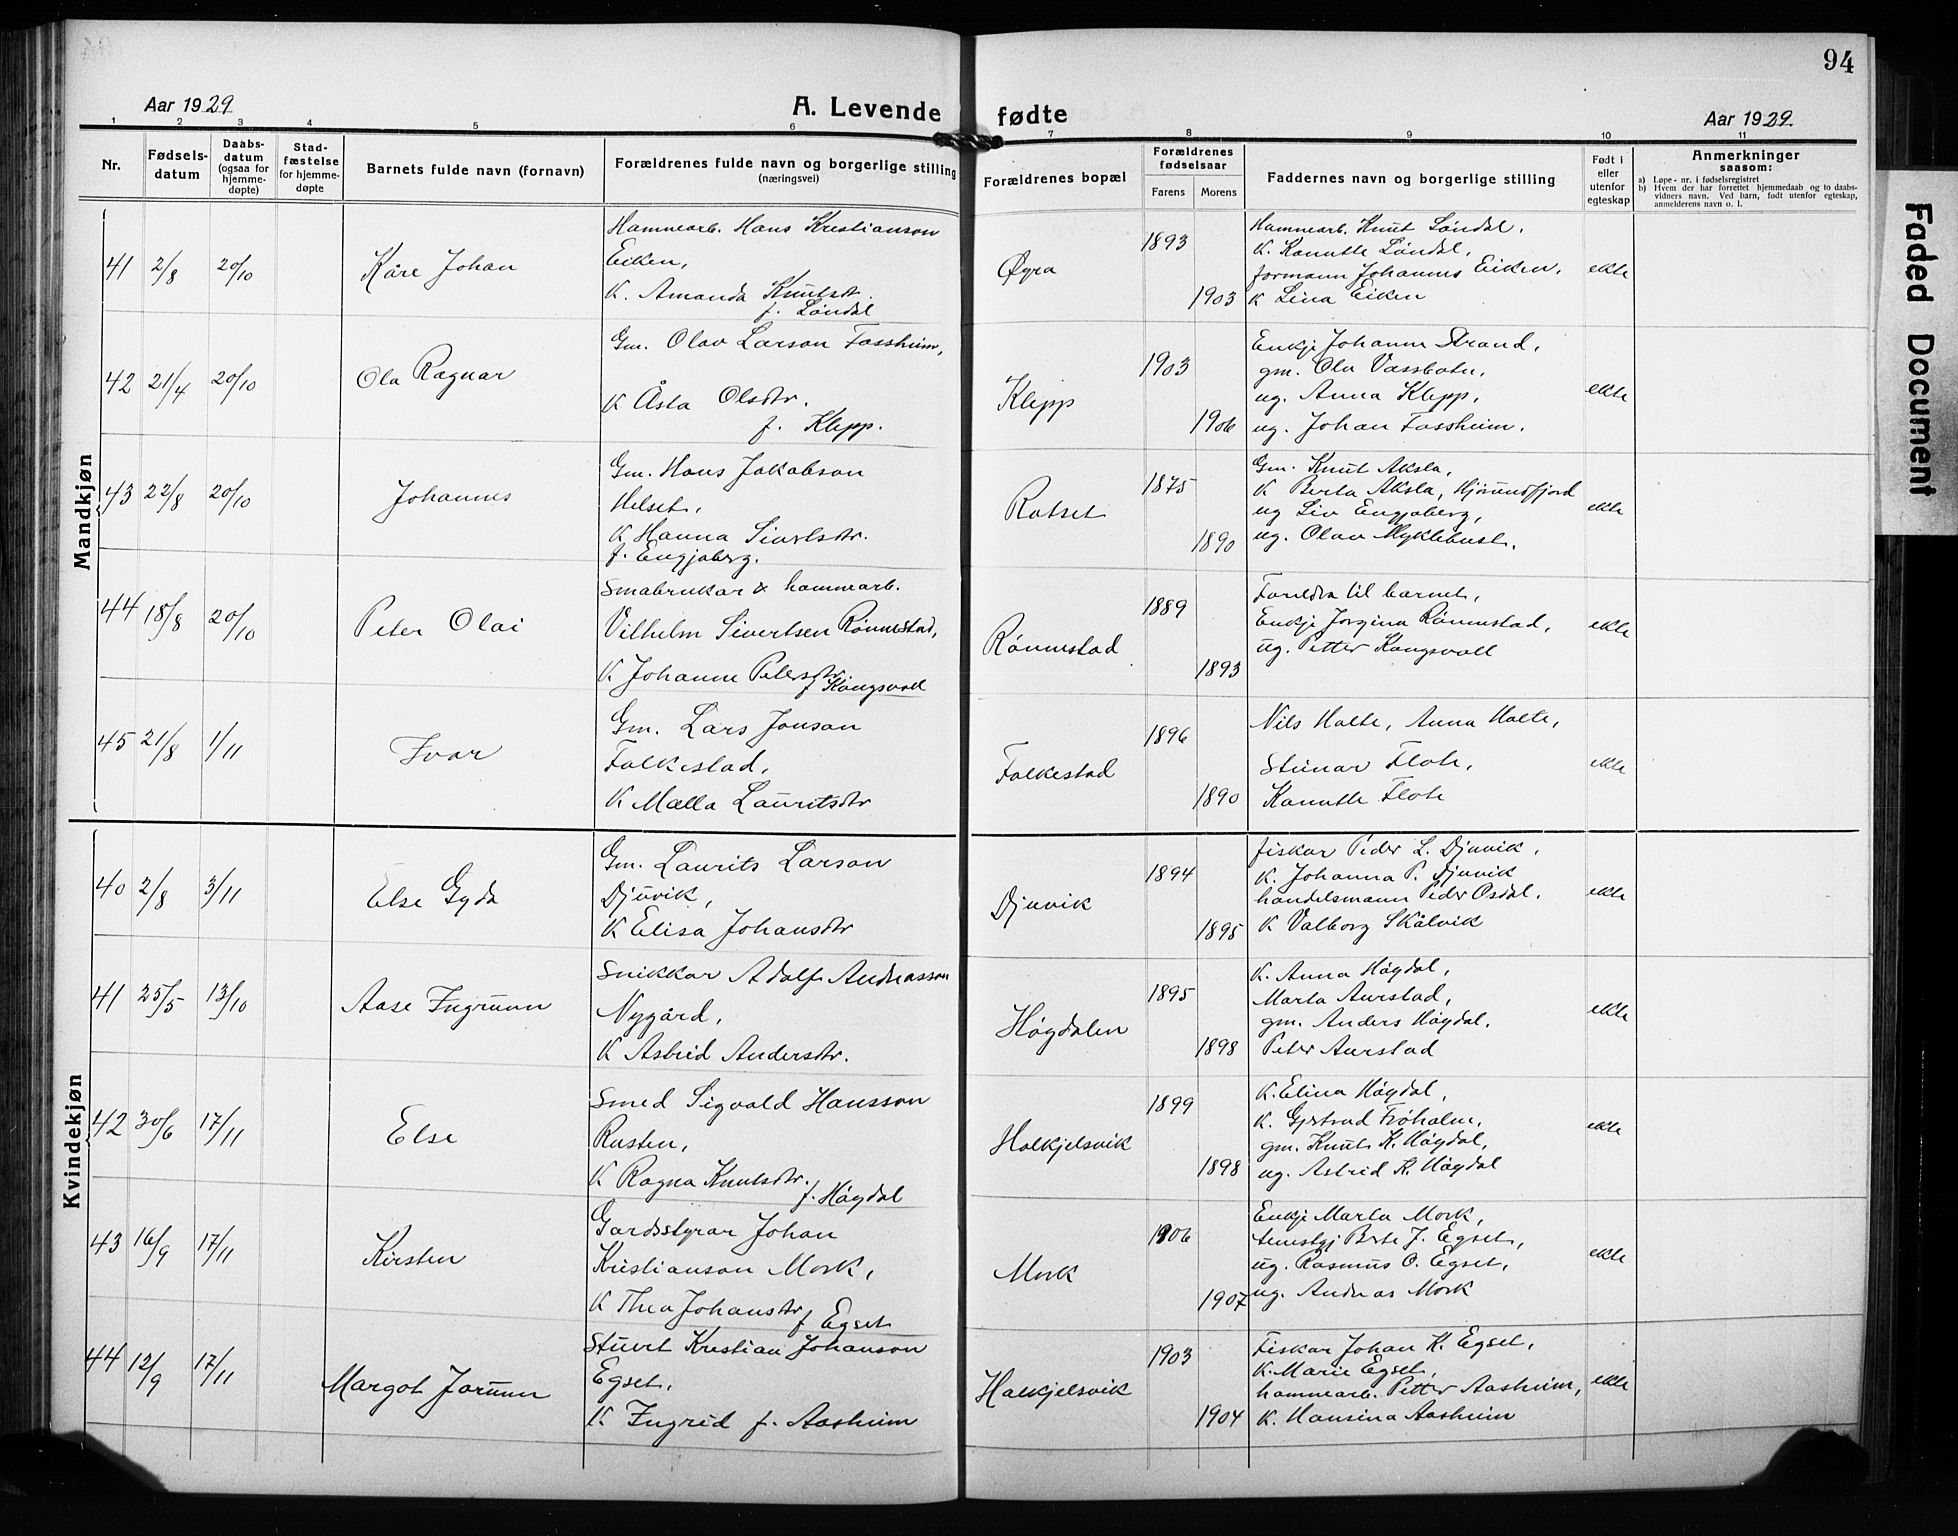 94
Aar 1929
A. Levende fødte
Aar 1929
1 2 3 4 5 6 7 8 9 10 11
Nr.
Fødsels-
datum
Daabs-
datum
(ogsaa for
hjemme-
døpte)
Stad-
fæstelse
for hjemme-
døpte
Barnets fulde navn (fornavn)
Forældrenes fulde navn og borgerlige stilling
(næringsvei)
Forældrenes bopæl
Forældrenes
fødselsaar
Farens Morens
Faddernes navn og borgerlige stilling
Født i
eller
utenfor
egteskap
Anmerkninger
saasom:
a) Løpe-nr. i fødselsregistret
b) Hvem der har forrettet hjemmedaab og to daabs-
vidners navn. Ved barn, født utenfor egteskap,
anmelderens navn o. l.
Mandkjøn
41 2/8 20/10 Kåre Johan
Hamnearb. Hans Kristianson
Eiken,
K. Amanda Knutsdr.
f. Løndal
Øyra
1893
1903
Hamnearb. Knut Løndal,
K. Kanutte Løndal,
formann Johannes Eiken,
K Lina Eiken
ekte
42 21/4 20/10 Ola Ragnar
Gm. Olav Larson Fossheim,
K Åsta Olsdtr.
f. Klepp.
Klepp
1903
1906
Enkje Johanne Strand,
gm. Ola Vassbotn,
ug. Anna Klepp,
ug. Johan Fossheim.
ekte
43 22/8 20/10 Johannes
Gm. Hans Jakobson
Helset,
K Hanna Sivertsdtr.
f. Engjaberg.
Rotset
1875
1890
Gm. Knut Aksla,
K Berta Aksla, Hjørundfjord
ug Liv Engjaberg,
ug. Olav Myklebust.
ekte
44 18/8 20/10 Peter Olai
Småbrukar & hamnearb.
Vilhelm Sivertsen Rønnestad,
K Johanne Petersdtr
f. Kongsvoll
Rønnestad
1889
1893
Foreldra til barnet,
Enkje Jorgina Rønnestad,
ug. Petter Kongsvoll
ekte
45 21/8 1/11 Ivar
Gm. Lars Jonson
Folkestad,
K Mælla Lauritsdtr
Folkestad
1896
1890
Nils Holte, Anna Holte,
Steinar Flote,
Kanutte Flote
ekte
Kvindekjøn
40 2/8 3/11 Else Gyda
Gm. Laurits Larson
Djuvik,
K Elisa Johansdtr
Djuvik
1894
1895
fiskar Peder L. Djuvik,
K. Johanna P. Djuvik
handelsmann Peder Osdal.
K Valborg Skålvik
ekte
41 25/5 13/10 Aase Ingrunn
Snikkar Adolf Andreasson
Nygård,
K Astrid Andersdtr.
Høgdalen
1895
1898
K. Anna Høgdal,
Marta Aurstad,
gm. Anders Høgdal,
Peter Aurstad
ekte
42 30/6 17/11 Else
Smed Sigvald Hansson
Rusten,
K Ragna Knutsdtr.
f. Høgdal
Halkjelsvik
1899
1898
K. Elina Høgdal,
K. Gjertrud Frøholm,
gm. Knut K. Høgdal,
ug. Astrid K. Høgdal
ekte
43 16/9 17/11 Kirsten
Gardsstyrar Johan
Kristianson Mork,
K Thea Johansdtr
f Egset
Mork
1906
1907
Enkje Marta Mork,
tenestgj Brte J. Egset,
ug. Rasmus O. Egset,
ug. Andreas Mork
ekte
44 12/9 17/11 Margot Jorunn
Stuert Kristian Johanson
Egset,
K. Ingrid f. Aasheim
Halkjelsvik
1903
1904
Fiskar Johan K. Egset,
K. Marie Egset,
hamnearb. Petter Aasheim,
K. Hansina Aasheim
ekte
Faded Document